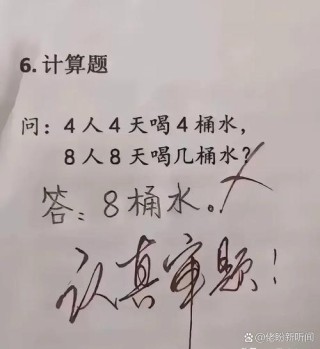 6.计算题
问：4人4天喝4桶水，
8人8天喝几桶水？
答：8桶水。
认真审题！
@佬盼新听闻